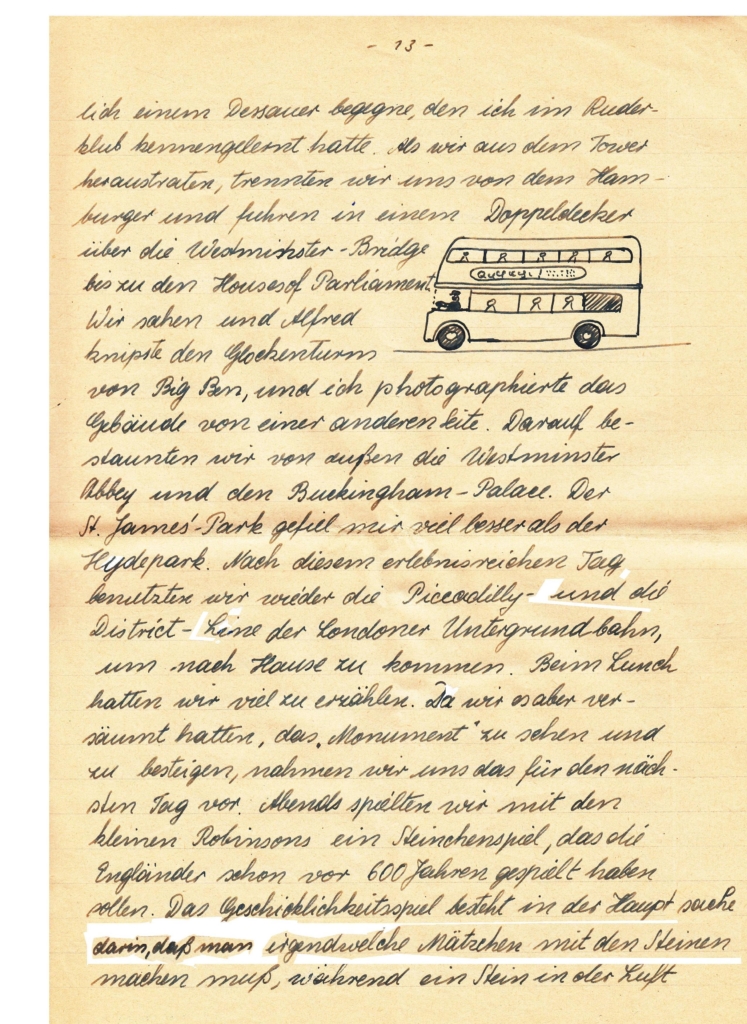 - 13 -
lich einem Dessauer begegne, den ich im Ruder-
klub kennengelernt hatte. Als wir aus dem Tower
heraustraten, trennten wir uns von dem Ham-
burger und fuhren in einem Doppeldecker
über die Westminster-Bridge
bis zu den Houses of Parliament.
Wir sahen und Alfred
knipste den Glockenturm
von Big Ben, und ich photographierte das
Gebäude von einer anderen Seite. Darauf be-
staunten wir von außen die Westminster
Abbey und den Buckingham-Palace. Der
St. James'-Park gefiel mir viel besser als der
Hydepark. Nach diesem erlebnisreichen Tag
benutzten wir wieder die Piccadilly- und die
District-Line der Londoner Untergrundbahn,
um nach Hause zu kommen. Beim Lunch
hatten wir viel zu erzählen. Da wir es aber ver-
säumt hatten, das „Monument" zu sehen und
zu besteigen, nahmen wir uns das für den näch-
sten Tag vor. Abends spielten wir mit den
kleinen Robinsons ein Steinchenspiel, das die
Engländer schon vor 600 Jahren gespielt haben
sollen. Das Geschicklichkeitsspiel besteht in der Hauptsache
darin, daß man irgendwelche Mätzchen mit den Steinen
machen muß, während ein Stein in der Luft